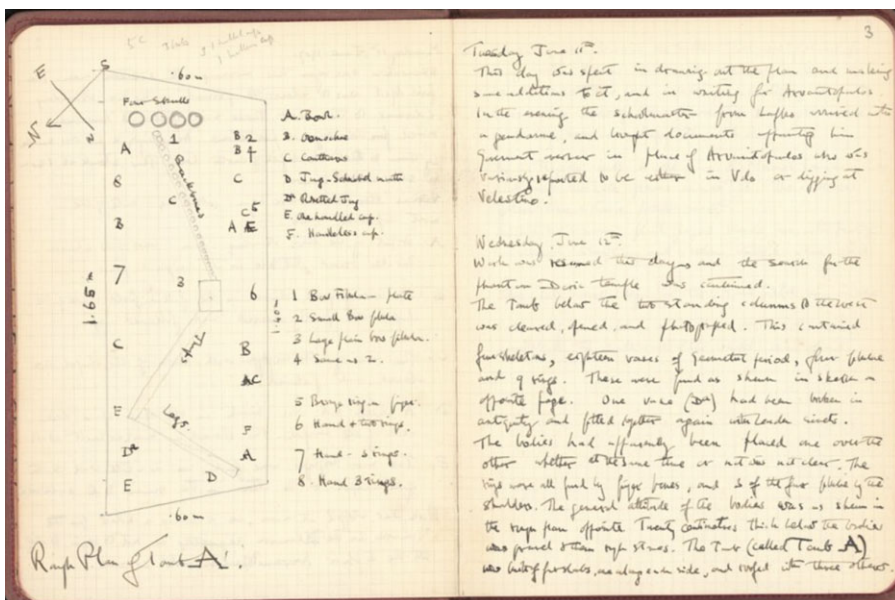 S
E
N
.60m
Four Skulls
A
1
B 2
B 4
Backbones
8
C
C
B
C 5
A E
7
3
6
1.65m
1.60m
Thighs
C
B
AC
E
Legs
F
Da
A
E
D
.60m
Rough Plan of Tomb A.
A. Bowl.
B. Oenochoe
C Cantharos
D Jug - Spouted mouth
Da Riveted Jug
E. One handled cup.
F. Handleless cup.
1 Bow Fibula - plate
2 Small Bow fibula
3 Large plain bow fibula.
4 Same as 2.
5 Bronze ring on finger.
6 Hand & two rings.
7 Hand - 3 rings.
8. Hand 3 rings.
3
Tuesday June 11th.
This day was spent in drawing out the plan and making
some additions to it, and in writing for Arvanitopoulos
In the evening the scholmaster from Lafkos arrived with
a gendarme, and brought documents appointing him
Government overseer in place of Arvanitopoulos who was
variously reported to be either in Volo or digging at
Velestino.
Wednesday, June 12th.
Work was resumed this day and the search for the
phantom Doric temple was continued.
The Tomb below the two standing columns to the west
was cleared, opened, and photographed. This contained
four skeletons, eighteen vases of Geometric period, four fibulae
and 9 rings. These were found as shewn in sketch on
opposite page. One vase (Da) had been broken in
antiquity and fitted together again with leaden rivets.
The bodies had apparently been placed one over the
other whether at the same time or not was not clear. The
rings were all found by finger bones, and 3 of the four fibulae by the
shoulders. The general attitude of the bodies was as shewn in
the rough plan opposite. Twenty centimetres thick below the bodies
was gravel & then rough stones. The Tomb (called Tomb A)
was built of four slabs, one along each side, and roofed with three others.